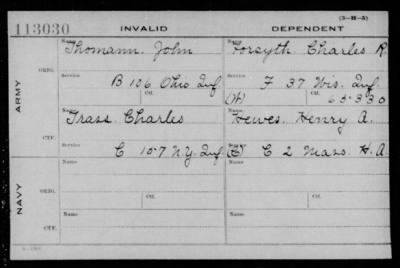 (3-H-5)
113030 INVALID DEPENDENT
Name Name
Thomann, John Forsyth, Charles R.
ORIG.
Service Service
B 106 Ohio Inf F 37 Wis. Inf.
Ctf. (W) Ctf. 653330
ARMY
Name Name
Trass Charles Hewes, Henry A.
CTF.
Service
C 157 N.Y. Inf (C) C 2 Mass. H. A.
Name Name
ORIG.
Service Ctf. Service Ctf.
NAVY
Name Name
CTF.
Service